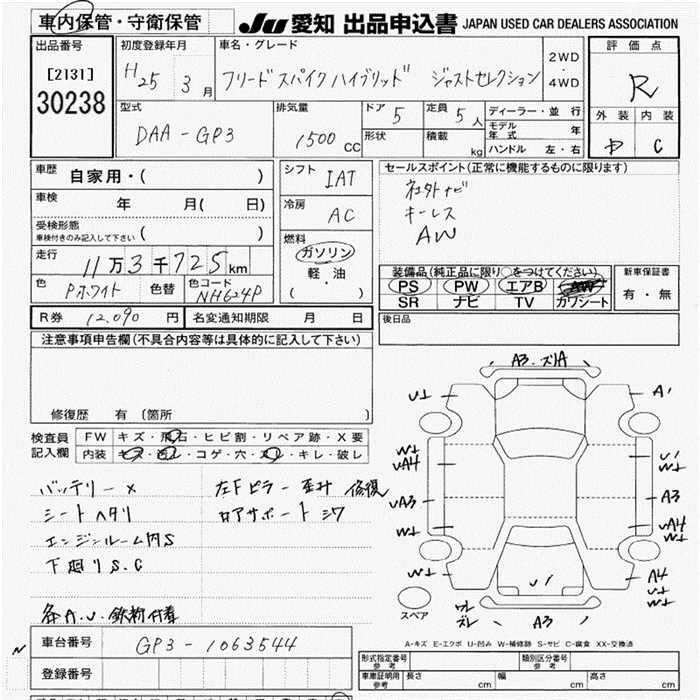 車内保管・守衛保管 JU 愛知 出品申込書 JAPAN USED CAR DEALERS ASSOCIATION
出品番号 初度登録年月 車名・グレード 2WD ・ 4WD 評価点
[2131] H25 3月 フリード スパイク ハイブリッド ジャストセレクション R
30238
型式 排気量 ドア 5 定員 5人 ディーラー・並行 外装 内装
DAA-GP3 1500 CC 形状 積載 kg モデル年式 年 C
ハンドル 左・右
車歴 自家用・( ) シフト IAT セールスポイント(正常に機能するものに限ります)
車検 年 月( 日) 冷房 AC 社外ナビ
受検形態 キーレス
車検付きのみ記入して下さい ( ) 燃料 AW
走行 11万3千725km ガソリン
軽・油
( )
装備品(純正品に限り○をつけてください) 新車保証書
色 Pホワイト 色替 色コード NH624P PS PW エアB AW 有・無
SR ナビ TV カワシート
R券 12,090円 名変通知期限 月 日 後日品
注意事項申告欄(不具合内容等は具体的に記入して下さい)
修復歴 有〔箇所 〕
検査員 FW キズ・飛石・ヒビ割・リペア跡・X要
記入欄 内装 キズ・汚レ・コゲ・穴・スレ・キレ・破レ
バッテリーX 左Fピラー 歪計 修復
シートヘタリ ロアサポートシワ
エンジンルーム内S
下廻りS.C
各A.U.鉄粉付着
A3.ズレA
U⊥ A'
W⊥ UA4 U' W⊥
UA3 A3
W⊥ UA4 W⊥
W⊥ A4 U⊥ W⊥
U'
スペア
ワレ ズレ A3
A-キズ E-エクボ U-凹み W-補修跡 S-サビ C-腐食 XX-交換済
車台番号 GP3-1063544
登録番号
型式指定番号 参考 類別区分番号 参考
車庫証明用 参考 長さ cm 幅 cm 高さ cm